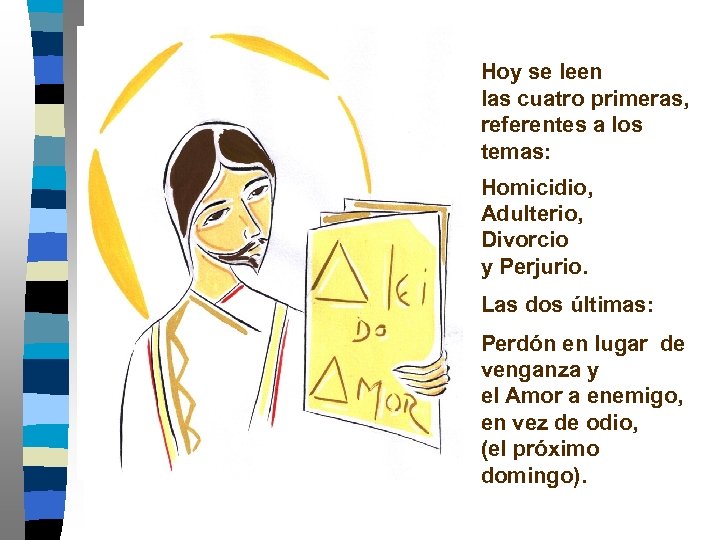 Hoy se leen
las cuatro primeras,
referentes a los
temas:
Homicidio,
Adulterio,
Divorcio
y Perjurio.
Las dos últimas:
Perdón en lugar de
venganza y
el Amor a enemigo,
en vez de odio,
(el próximo
domingo).
A lei
DO
AMOR